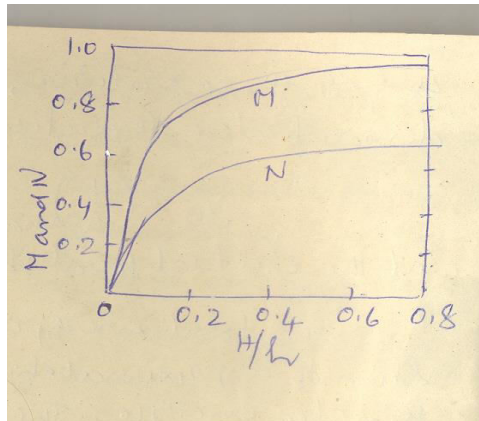 1.0
0.8
0.6
0.4
0.2
0
M and N
M
N
0.2 0.4 0.6 0.8
H/h